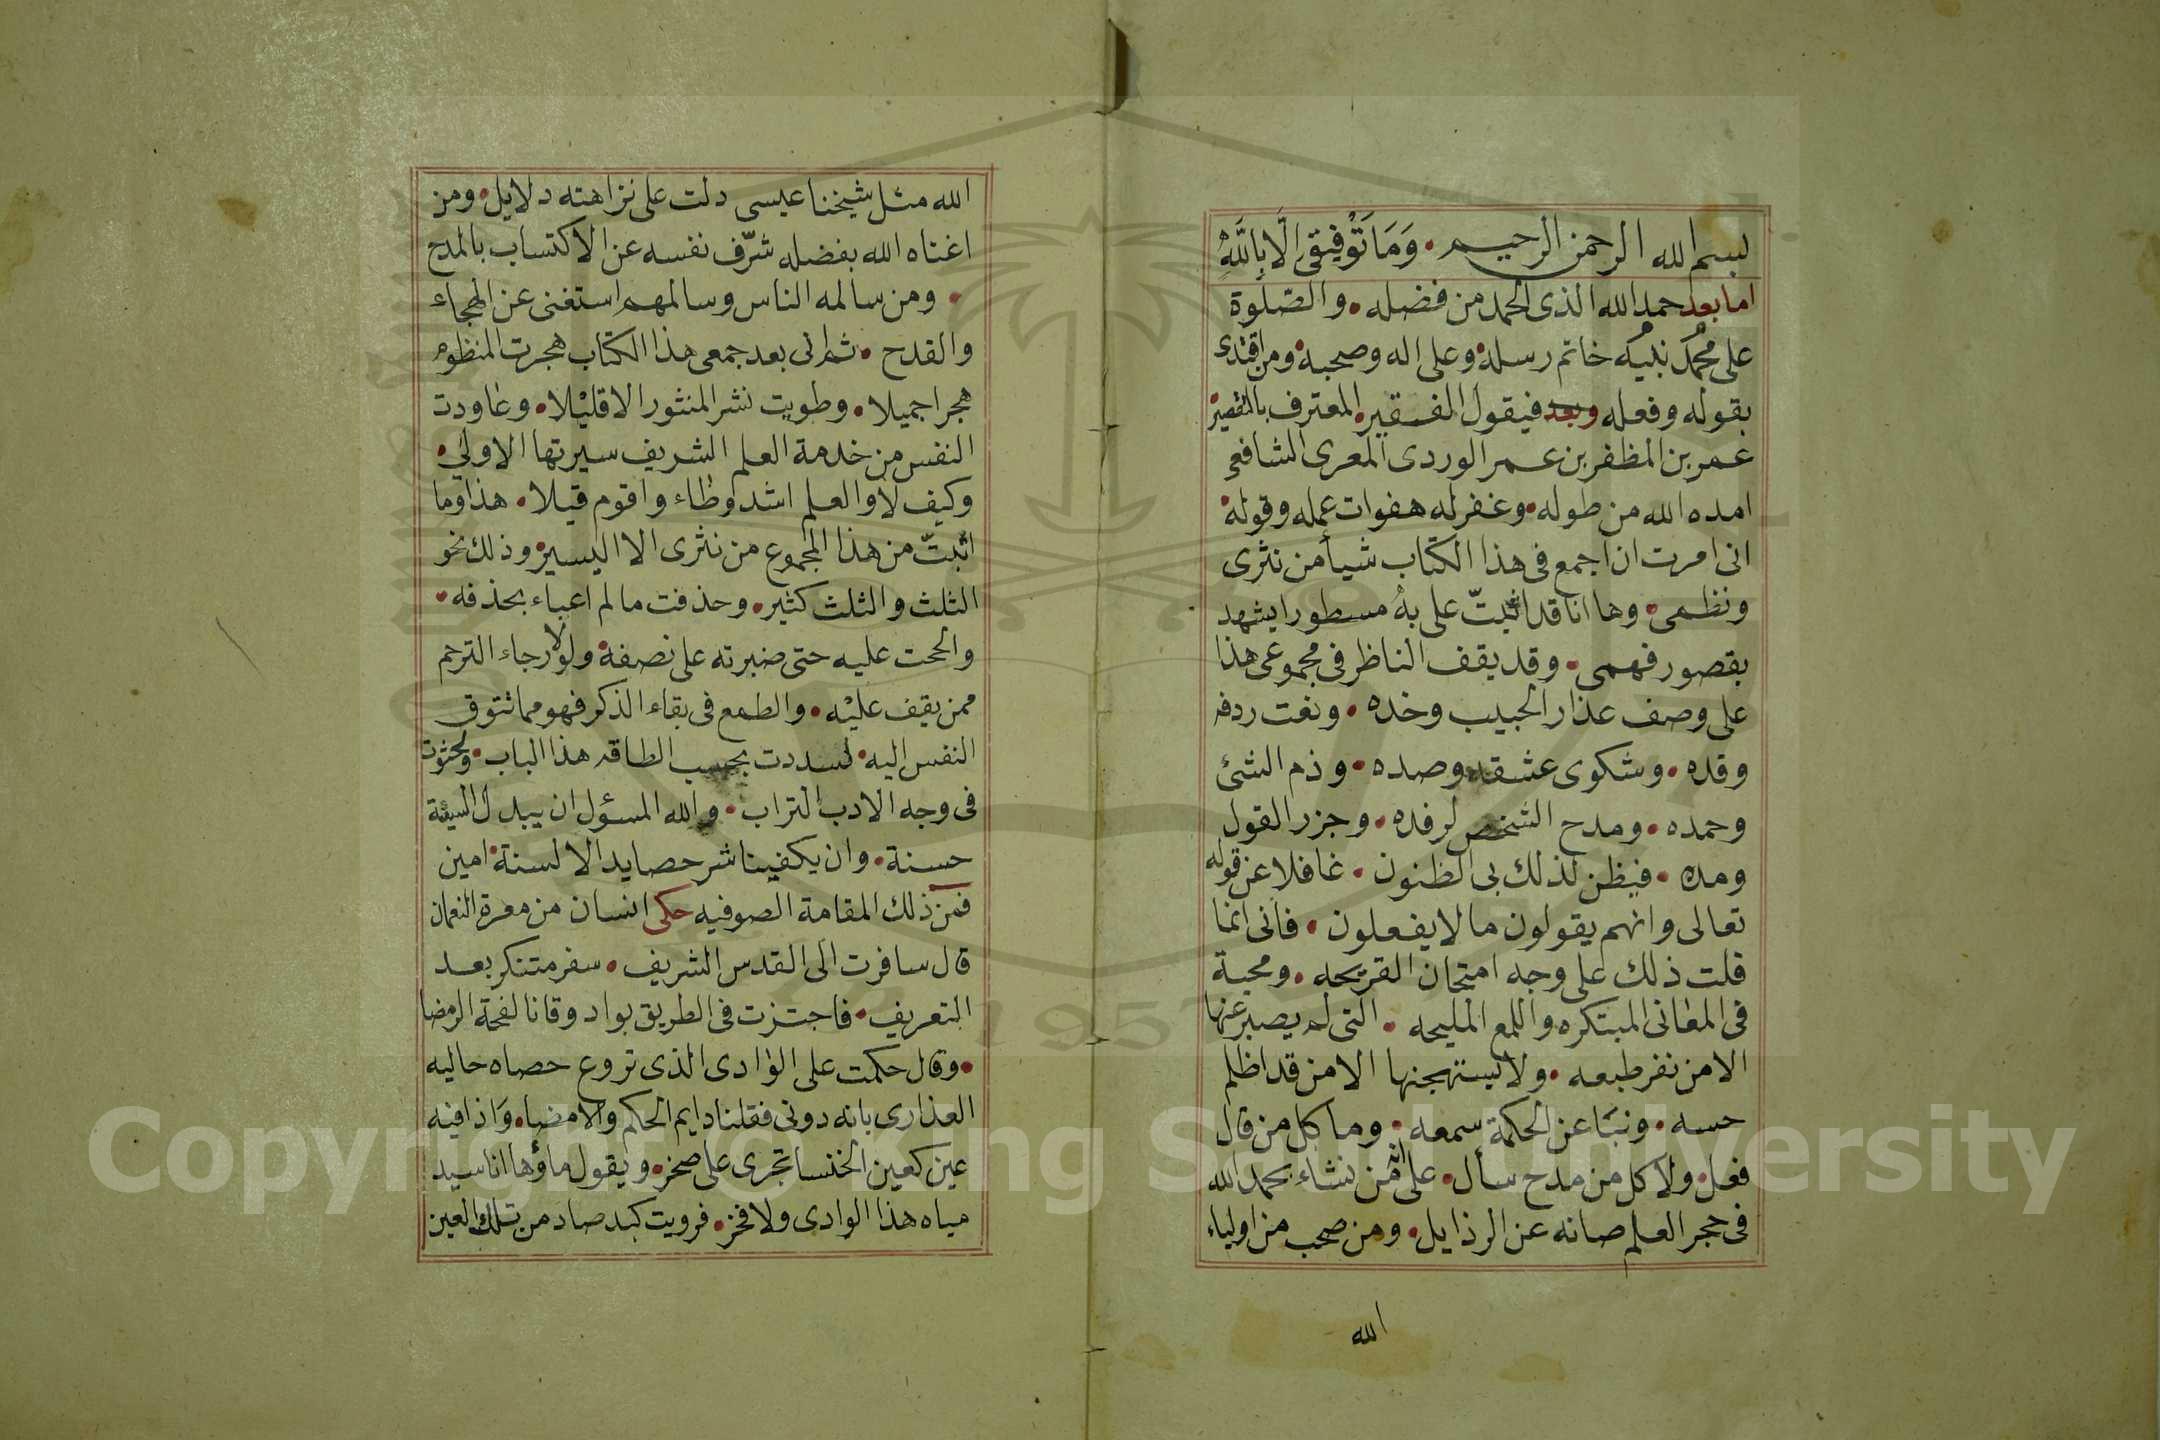 بسم الله الرحمن الرحيم • وَمَا تَوْفِيقِى الَّا بِاللَّهِ
اما بعد حمد الله الذى الحمد من فضله • والصّلوة
على محمد نبيه خاتم رسله • وعلى اله وصحبه • ومن اقتدى
بقوله وفعله وبعد فيقول الفقير المعترف بالتقصير •
عمر بن المظفر بن عمر الوردى المعرى الشافعى
امده الله من طوله • وغفر له هفوات عمله وقوله •
انى امرت ان اجمع فى هذا الكتاب شيأ من نثرى
ونظمى • وها انا قد اثبتّ على به مسطورا يشهد
بقصور فهمى • وقد يقف الناظر فى مجموعى هذا
على وصف عذار الحبيب وخده • ونعت ردفه
وقده • وشكوى عشقه وصده • وذم الشئ
وحمده • ومدح الشخص لرفده • وجزر القول
ومده • فيظن لذلك بى الظنون • غافلا عن قوله
تعالى وانهم يقولون ما لا يفعلون • فانى انما
قلت ذلك على وجه امتحان القريحه • ومحبة
فى المعانى المبتكره واللمع المليحه • التى لم يصبر عنها
الا من نفر طبعه • ولا يستهجنها الا من قد اظلم
حسه • ونبا عن الحكمة سمعه • وما كل من قال
فعل • ولا كل من مدح سأل • على ان من نشاء بحمد الله
فى حجر العلم صانه عن الرذايل • ومن صحب من اولياء
الله
الله مثل شيخنا عيسى دلت على نزاهته دلايل • ومن
اغناه الله بفضله شرّف نفسه عن الاكتساب بالمدح
• ومن سالمه الناس وسالمهم استغنى عن الهجاء
والقدح • ثم انى بعد جمعى هذا الكتاب هجرت المنظوم
هجرا جميلا • وطويت نشر المنثور الا قليلا • وعاودت
النفس من خدمة العلم الشريف سيرتها الاولى •
وكيف لا والعلم اشد وطاء واقوم قيلا • هذا وما
اثبتّ من هذا المجموع من نثرى الا اليسير • وذلك نحو
الثلث والثلث كثير • وحذفت ما لم اعباء بحذفه •
والححت عليه حتى صبرته على نصفه • ولولا رجاء الترحم
ممن يقف عليه • والطمع فى بقاء الذكر فهو مما تتوق
النفس اليه • لسددت بحسب الطاقه هذا الباب • ولحثوت
فى وجه الادب التراب • والله المسؤل ان يبدل السيئة
حسنة • وان يكفينا شر حصايد الالسنة • امين
فمن ذلك المقامة الصوفيه حكى انسان من معرة النعمان
قال سافرت الى القدس الشريف • سفر متنكر بعد
التعريف • فاجتزت فى الطريق بواد وقانا لفحة الرمضا
• وقال حكمت على الوادى الذى تروع حصاه حاليه
العذارى بانه دونى فقلنا دايم الحكم والامضا • وَاذا فيه
عين كعين الخنسا تجرى على صخر • ويقول ماؤها انا سيد
مياه هذا الوادى ولا فخر • فرويت كبد صاد من تلك العين